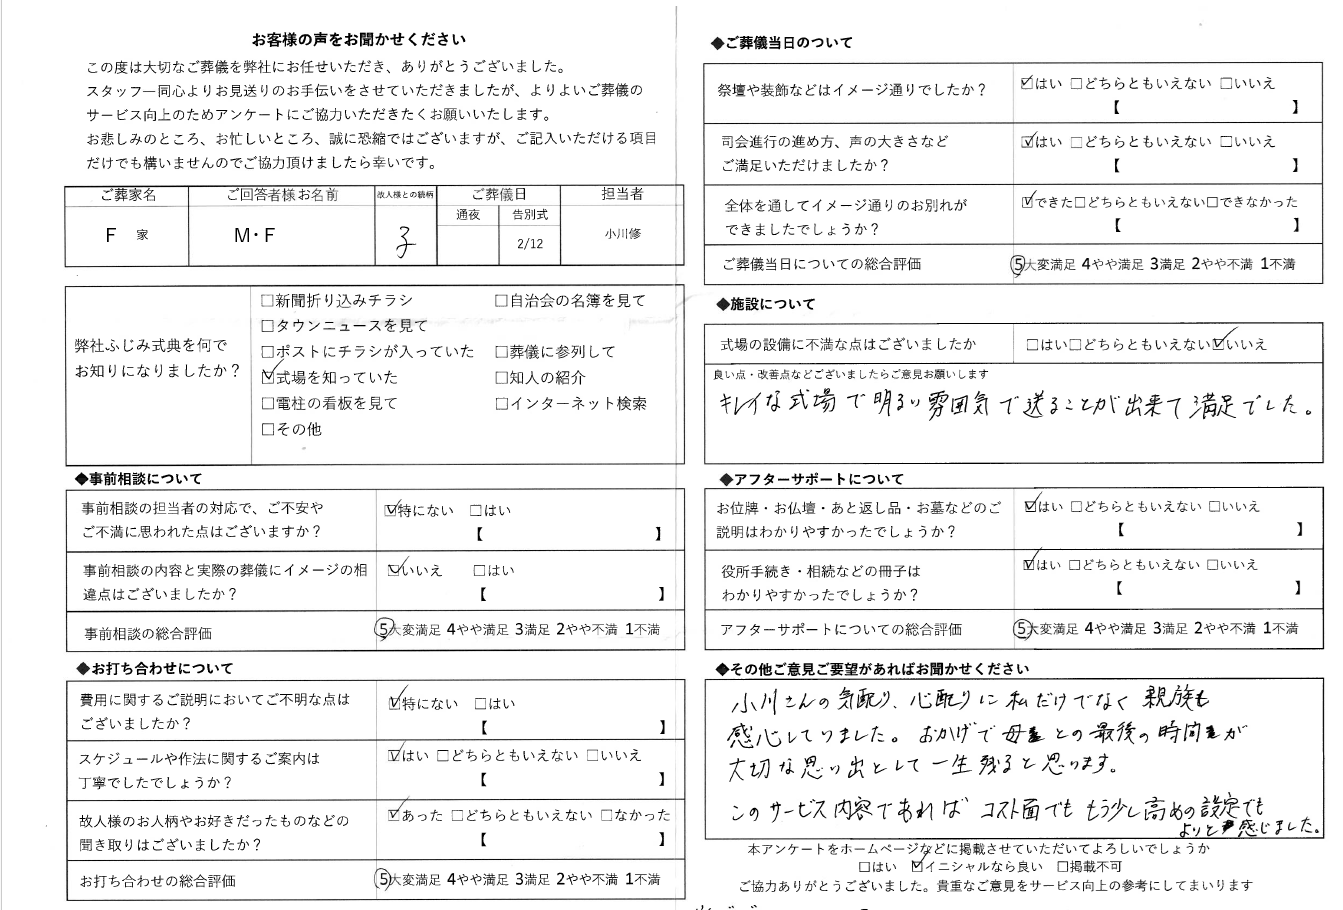 お客様の声をお聞かせください
この度は大切なご葬儀を弊社にお任せいただき、ありがとうございました。
スタッフ一同心よりお見送りのお手伝いをさせていただきましたが、よりよいご葬儀の
サービス向上のためアンケートにご協力いただきたくお願いいたします。
お悲しみのところ、お忙しいところ、誠に恐縮ではございますが、ご記入いただける項目
だけでも構いませんのでご協力頂けましたら幸いです。
ご葬家名 ご回答者様お名前 故人様との続柄 ご葬儀日 担当者
通夜 告別式
F 家 M・F 子 2/12 小川修
弊社ふじみ式典を何で
お知りになりましたか？
□新聞折り込みチラシ □自治会の名簿を見て
□タウンニュースを見て
□ポストにチラシが入っていた □葬儀に参列して
☑式場を知っていた □知人の紹介
□電柱の看板を見て □インターネット検索
□その他
◆事前相談について
事前相談の担当者の対応で、ご不安や
ご不満に思われた点はございますか？
☑特にない □はい
【 】
事前相談の内容と実際の葬儀にイメージの相
違点はございましたか？
☑いいえ □はい
【 】
事前相談の総合評価 5大変満足 4やや満足 3満足 2やや不満 1不満
◆お打ち合わせについて
費用に関するご説明においてご不明な点は
ございましたか？
☑特にない □はい
【 】
スケジュールや作法に関するご案内は
丁寧でしたでしょうか？
☑はい □どちらともいえない □いいえ
【 】
故人様のお人柄やお好きだったものなどの
聞き取りはございましたか？
☑あった □どちらともいえない □なかった
【 】
お打ち合わせの総合評価 5大変満足 4やや満足 3満足 2やや不満 1不満
◆ご葬儀当日のついて
祭壇や装飾などはイメージ通りでしたか？ ☑はい □どちらともいえない □いいえ
【 】
司会進行の進め方、声の大きさなど
ご満足いただけましたか？
☑はい □どちらともいえない □いいえ
【 】
全体を通してイメージ通りのお別れが
できましたでしょうか？
☑できた□どちらともいえない□できなかった
【 】
ご葬儀当日についての総合評価 5大変満足 4やや満足 3満足 2やや不満 1不満
◆施設について
式場の設備に不満な点はございましたか □はい□どちらともいえない☑いいえ
良い点・改善点などございましたらご意見お願いします
キレイな式場で明るい雰囲気で送ることが出来て満足でした。
◆アフターサポートについて
お位牌・お仏壇・あと返し品・お墓などのご
説明はわかりやすかったでしょうか？
☑はい □どちらともいえない □いいえ
【 】
役所手続き・相続などの冊子は
わかりやすかったでしょうか？
☑はい □どちらともいえない □いいえ
【 】
アフターサポートについての総合評価 5大変満足 4やや満足 3満足 2やや不満 1不満
◆その他ご意見ご要望があればお聞かせください
小川さんの気配り、心配りに私だけでなく親族も
感心していました。おかげで母との最後の時間が
大切な思い出として一生残ると思います。
このサービス内容であれば コスト面でももう少し高めの設定でも
よいと感じました。
本アンケートをホームページなどに掲載させていただいてよろしいでしょうか
□はい ☑イニシャルなら良い □掲載不可
ご協力ありがとうございました。貴重なご意見をサービス向上の参考にしてまいります